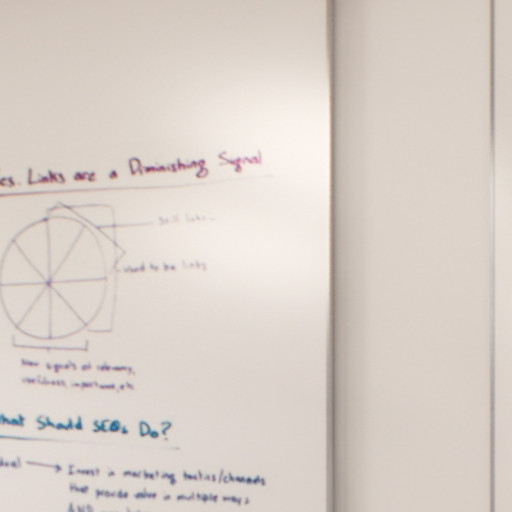 es. Links are a Diminishing Signal
still links
used to be links
New signals of relevancy,
usefulness, importance, etc
hat Should SEOs Do?
Invest in marketing tactics/channels
that provide value in multiple ways
AND